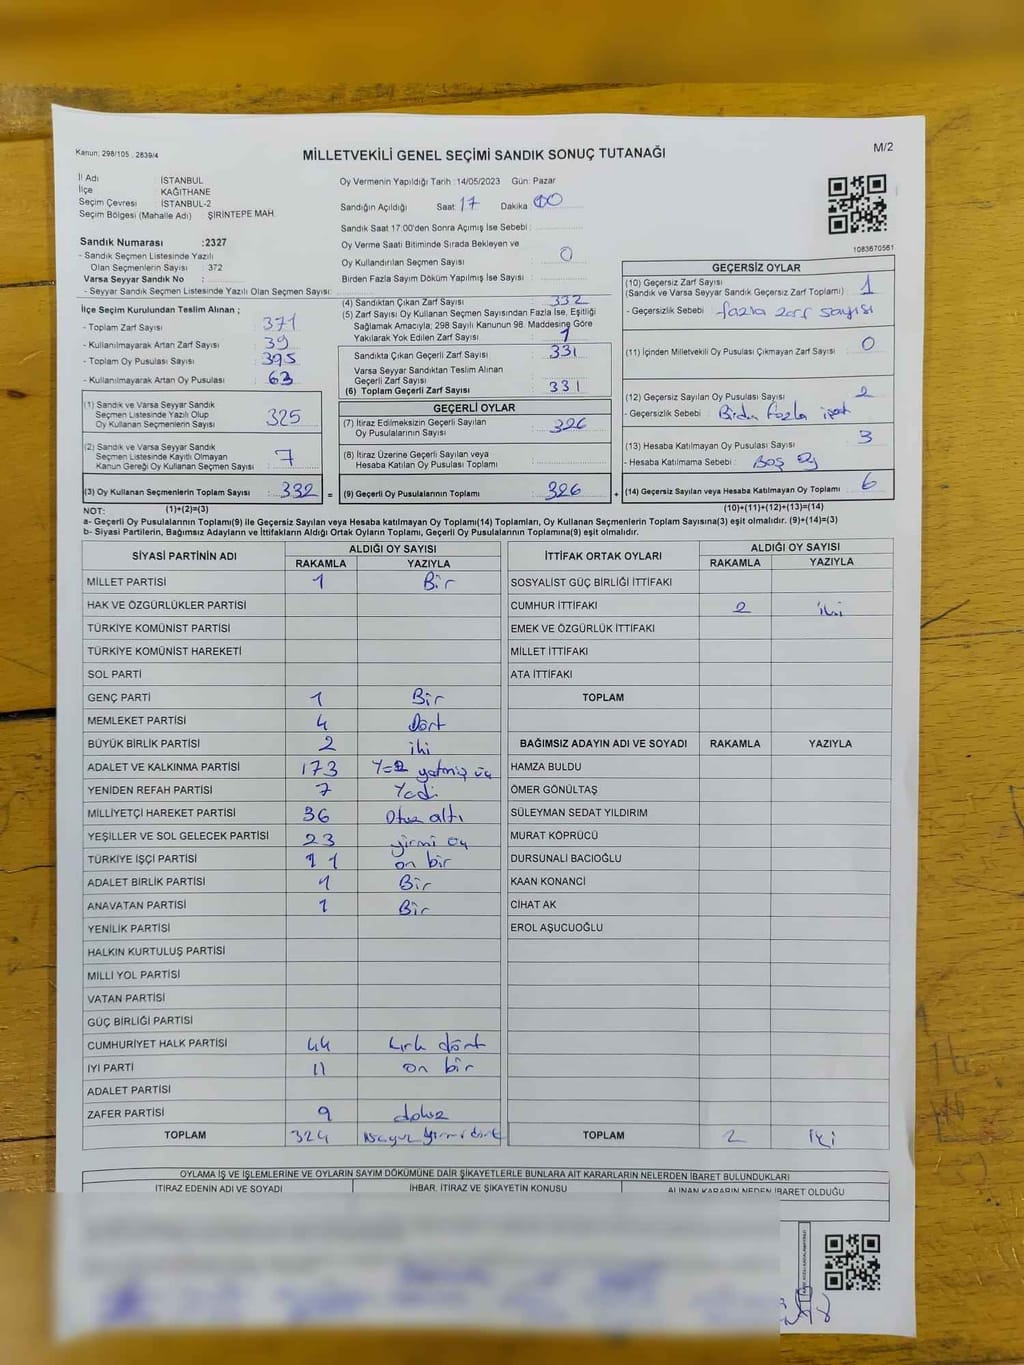 Kanun; 298/105 , 2839/4
MİLLETVEKİLİ GENEL SEÇİMİ SANDIK SONUÇ TUTANAĞI
M/2
İl Adı İSTANBUL
İlçe KAĞITHANE
Seçim Çevresi : İSTANBUL-2
Seçim Bölgesi (Mahalle Adı) : ŞİRİNTEPE MAH.
Sandık Numarası :2327
- Sandık Seçmen Listesinde Yazılı
Olan Seçmenlerin Sayısı : 372
Varsa Seyyar Sandık No :
- Seyyar Sandık Seçmen Listesinde Yazılı Olan Seçmen Sayısı:
Oy Vermenin Yapıldığı Tarih :14/05/2023 Gün: Pazar
Sandığın Açıldığı Saat : 17 Dakika : 00
Sandık Saat 17:00'den Sonra Açımış İse Sebebi :
Oy Verme Saati Bitiminde Sırada Bekleyen ve
Oy Kullandırılan Seçmen Sayısı : 0
Birden Fazla Sayım Döküm Yapılmış İse Sayısı :
1083670561
İlçe Seçim Kurulundan Teslim Alınan ;
- Toplam Zarf Sayısı : 371
- Kullanılmayarak Artan Zarf Sayısı : 39
- Toplam Oy Pusulası Sayısı : 395
- Kullanılmayarak Artan Oy Pusulası : 63
(1) Sandık ve Varsa Seyyar Sandık
Seçmen Listesinde Yazılı Olup
Oy Kullanan Seçmenlerin Sayısı : 325
(2) Sandık ve Varsa Seyyar Sandık
Seçmen Listesinde Kayıtlı Olmayan
Kanun Gereği Oy Kullanan Seçmen Sayısı : 7
(3) Oy Kullanan Seçmenlerin Toplam Sayısı : 332 =
(4) Sandıktan Çıkan Zarf Sayısı : 332
(5) Zarf Sayısı Oy Kullanan Seçmen Sayısından Fazla İse, Eşitliği
Sağlamak Amacıyla; 298 Sayılı Kanunun 98. Maddesine Göre
Yakılarak Yok Edilen Zarf Sayısı : 1
Sandıkta Çıkan Geçerli Zarf Sayısı : 331
Varsa Seyyar Sandıktan Teslim Alınan
Geçerli Zarf Sayısı :
(6) Toplam Geçerli Zarf Sayısı : 331
GEÇERLİ OYLAR
(7) İtiraz Edilmeksizin Geçerli Sayılan
Oy Pusulalarının Sayısı : 326
(8) İtiraz Üzerine Geçerli Sayılan veya
Hesaba Katılan Oy Pusulası Toplamı :
(9) Geçerli Oy Pusulalarının Toplamı : 326 +
GEÇERSİZ OYLAR
(10) Geçersiz Zarf Sayısı
(Sandık ve Varsa Seyyar Sandık Geçersiz Zarf Toplamı) : 1
- Geçersizlik Sebebi : fazla zarf sayısı
(11) İçinden Milletvekili Oy Pusulası Çıkmayan Zarf Sayısı : 0
(12) Geçersiz Sayılan Oy Pusulası Sayısı : 2
- Geçersizlik Sebebi : Birden fazla
(13) Hesaba Katılmayan Oy Pusulası Sayısı : 3
- Hesaba Katılmama Sebebi : Boş oy
(14) Geçersiz Sayılan veya Hesaba Katılmayan Oy Toplamı : 6
NOT: (1)+(2)=(3) (10)+(11)+(12)+(13)=(14)
a- Geçerli Oy Pusulalarının Toplamı(9) ile Geçersiz Sayılan veya Hesaba katılmayan Oy Toplamı(14) Toplamları, Oy Kullanan Seçmenlerin Toplam Sayısına(3) eşit olmalıdır. (9)+(14)=(3)
b- Siyasi Partilerin, Bağımsız Adayların ve İttifakların Aldığı Ortak Oyların Toplamı, Geçerli Oy Pusulalarının Toplamına(9) eşit olmalıdır.
SİYASİ PARTİNİN ADI ALDIĞI OY SAYISI
RAKAMLA YAZIYLA
MİLLET PARTİSİ 1 Bir
HAK VE ÖZGÜRLÜKLER PARTİSİ
TÜRKİYE KOMÜNİST PARTİSİ
TÜRKİYE KOMÜNİST HAREKETİ
SOL PARTİ
GENÇ PARTİ 1 Bir
MEMLEKET PARTİSİ 4 Dört
BÜYÜK BİRLİK PARTİSİ 2 iki
ADALET VE KALKINMA PARTİSİ 173 yetmiş üç
YENİDEN REFAH PARTİSİ 7 Yedi
MİLLİYETÇİ HAREKET PARTİSİ 36 Otuz altı
YEŞİLLER VE SOL GELECEK PARTİSİ 23 yirmi üç
TÜRKİYE İŞÇİ PARTİSİ 11 on bir
ADALET BİRLİK PARTİSİ 1 Bir
ANAVATAN PARTİSİ 1 Bir
YENİLİK PARTİSİ
HALKIN KURTULUŞ PARTİSİ
MİLLİ YOL PARTİSİ
VATAN PARTİSİ
GÜÇ BİRLİĞİ PARTİSİ
CUMHURİYET HALK PARTİSİ 44 kırk dört
İYİ PARTİ 11 on bir
ADALET PARTİSİ
ZAFER PARTİSİ 9 dokuz
TOPLAM 324 üçyüz yirmi dört
İTTİFAK ORTAK OYLARI ALDIĞI OY SAYISI
RAKAMLA YAZIYLA
SOSYALİST GÜÇ BİRLİĞİ İTTİFAKI
CUMHUR İTTİFAKI 2 iki
EMEK VE ÖZGÜRLÜK İTTİFAKI
MİLLET İTTİFAKI
ATA İTTİFAKI
TOPLAM
BAĞIMSIZ ADAYIN ADI VE SOYADI RAKAMLA YAZIYLA
HAMZA BULDU
ÖMER GÖNÜLTAŞ
SÜLEYMAN SEDAT YILDIRIM
MURAT KÖPRÜCÜ
DURSUNALİ BACIOĞLU
KAAN KONANCİ
CİHAT AK
EROL AŞUCUOĞLU
TOPLAM 2 iki
OYLAMA İŞ VE İŞLEMLERİNE VE OYLARIN SAYIM DÖKÜMÜNE DAİR ŞİKAYETLERLE BUNLARA AİT KARARLARIN NELERDEN İBARET BULUNDUKLARI
İTİRAZ EDENİN ADI VE SOYADI İHBAR, İTİRAZ VE ŞİKAYETİN KONUSU ALINAN KARARIN NEDEN İBARET OLDUĞU